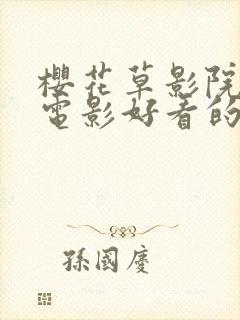 櫻花草影院
電影好看的
孫國慶